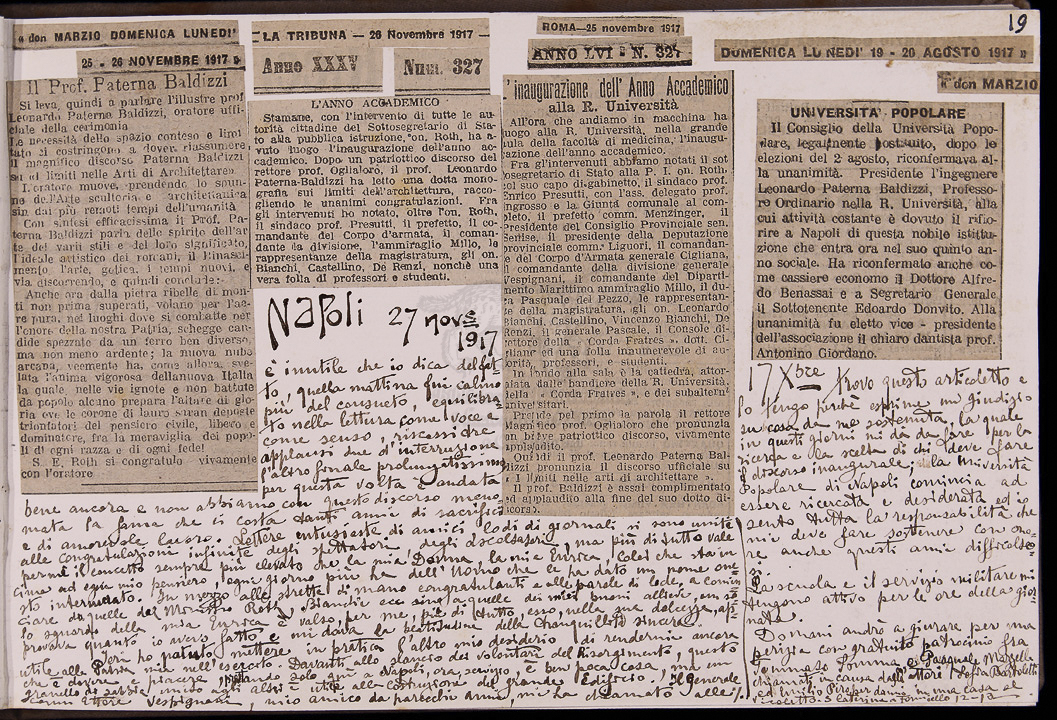 19
« don MARZIO DOMENICA LUNEDI'
25 - 26 NOVEMBRE 1917 »
Il Prof. Paterna Baldizzi
Si leva, quindi a parlare l'illustre prof
Leonardo Paterna Baldizzi, oratore uffi-
ciale della cerimonia
Le necessità dello spazio conteso e limi
tato ci costringono a dover riassumere,
il magnifico discorso Paterna Baldizzi
sui di limiti nelle Arti di Architettare».
L'oratore muove, prendendo lo spun-
to dell'Arte scultoria e architettonica
sin dai più remoti tempi dell'umanità
Con sintesi efficacissima il Prof. Pa-
terna Baldizzi parla dello spirito dell'ar
te dei varii stili e del loro significato,
l'ideale artistico dei romani, il Rinasci
mento l'arte, gotica, i tempi nuovi, e
via discorrendo, e quindi conclude:
Anche ora dalla pietra ribelle di mon-
ti non prima superati, volano per l'ae-
re pura, nei luoghi dove si combatte per
l'onore della nostra Patria, schegge can-
dide spezzate da un ferro ben diverso,
ma non meno ardente; la nuova nube
arcana, veemente ha come allora, sve-
lata l'anima vigorosa dell'nuova Italia
la quale, nelle vie ignote e non battute
da popolo alcuno prepara l'altare di glo-
ria ove le corone di lauro saran deposte
trionfatori del pensiero civile, libero e
dominatore, fra la meraviglia dei popo-
li di ogni razza e di ogni fede!
S. E. Roth si congratulò vivamente
con l'oratore
- LA TRIBUNA — 26 Novembre 1917 —
Anno XXXV Num. 327
L'ANNO ACCADEMICO
Stamane, con l'intervento di tutte le au-
torità cittadine del Sottosegretario di Sta-
to alla pubblica istruzione on. Roth, ha a-
vuto luogo l'inaugurazione dell'anno ac-
cademico. Dopo un patriottico discorso del
rettore prof. Oglialoro, il prof. Leonardo
Paterna-Baldizzi ha letto una dotta mono-
grafia sui limiti dell'architettura, racco-
gliendo le unanimi congratulazioni. Fra
gli intervenuti ho notato, oltre l'on. Roth,
il sindaco prof. Presutti, il prefetto, il co-
mandante del Corpo d'armata, il coman-
dante la divisione, l'ammiraglio Millo, le
rappresentanze della magistratura, gli on.
Bianchi, Castellino, De Renzi, nonchè una
vera folla di professori e studenti.
Napoli 27 nove
1917
è inutile che io dica del fat
to, quella mattina fui calmo
più del consueto, equilibra
to nella lettura come voce e
come senso, riscossi dre
applausi due d'interruzione
l'altro finale prolungatissimo
per questa volta è andata
bene ancora e non abbiamo con questo discorso meno-
mata la fama che ci costa tanti anni di sacrifici
e di amorevole lavoro. Lettere entusiaste di amici lodi di giornali si sono unite
alle congratulazioni infinite degli spettatori degli ascoltatori, ma più di tutto vale
per me il concetto sempre più elevato che la mia Donna, la mia Enrica, colei che sta vi
cino ad ogni mio pensiero, ogni giorno più ha dell'Uomo che le ha dato un nome one
sto intemerato. In mezzo alle strette di mano congratulanti e alle parole di lode, a comin
ciare da quelle del Ministro Roth, Bianchi ecc sino a quelle dei miei buoni allievi, un so
lo sguardo della mia Enrica è valso, per me, più di tutto, esso, nella sua dolcezza, ap-
provava quanto io avevo fatto, e mi dava la gratitudine della tranquillità sincera.
Ieri ho potuto mettere in pratica l'altro mio desiderio di rendermi ancora
utile alla Patria
ROMA—25 novembre 1917
ANNO LVI - N. 327
l'inaugurazione dell' Anno Accademico
alla R. Università
All'ora che andiamo in macchina ha
luogo alla R. Università, nella grande
aula della facoltà di medicina, l'inaugu-
razione dell'anno accademico.
Fra gl'intervenuti abbiamo notati il sot
osegretario di Stato alla P. I. on. Roth,
col suo capo di gabinetto, il sindaco prof.
Enrico Presutti, con l'ass. delegato prof.
Ingrosso e la Giunta comunale al com-
pleto, il prefetto comm. Menzinger, il
Presidente del Consiglio Provinciale sen.
Senise, il presidente della Deputazione
provinciale comm. Liguori, il comandan-
te del Corpo d'Armata generale Cigliana,
il comandante della divisione generale
Vespignani, il comandante del Diparti-
mento Marittimo ammiraglio Millo, il du-
ca Pasquale del Pezzo, le rappresentan-
ze della magistratura, gli on. Leonardo
Bianchi, Castellino, Vincenzo Bianchi, De
Renzi, il generale Pascale, il Console di-
rettore della «Corda Fratres». dott. Ci-
gliano ed una folla innumerevole di au-
torità, professori, e studenti.
In fondo alla sala è la cattedra, attor-
niata dalle bandiere della R. Università,
della « Corda Fratres », e dei subalterni
universitari.
Prende pel primo la parola il rettore
Magnifico prof. Oglialoro che pronunzia
un breve patriottico discorso, vivamente
applaudito.
Quindi il prof. Leonardo Paterna Bal-
dizzi pronunzia il discorso ufficiale su
« I limiti nelle arti di architettare ».
Il prof. Baldizzi è assai complimentato
ed applaudito alla fine del suo dotto di-
scorso.
DOMENICA LUNEDI' 19 - 20 AGOSTO 1917 »
« don MARZIO
UNIVERSITA' POPOLARE
Il Consiglio della Università Popo-
lare, legalmente costituito, dopo le
elezioni del 2 agosto, riconfermava al-
la unanimità. Presidente l'ingegnere
Leonardo Paterna Baldizzi, Professo-
re Ordinario nella R. Università, alla
cui attività costante è dovuto il rifio-
rire a Napoli di questa nobile istitu-
zione che entra ora nel suo quinto an-
no sociale. Ha riconfermato anche co-
me cassiere economo il Dottore Alfre-
do Benassai e a Segretario Generale
il Sottotenente Edoardo Donvito. Alla
unanimità fu eletto vice - presidente
dell'associazione il chiaro dantista prof.
Antonino Giordano.
17 Xbre Trovo questo articoletto e
lo tengo perchè esprime un giudizio
su cosa da me sostenuta, la quale
in questi giorni mi dà da fare per la
ricerca e la scelta di chi deve fare
il discorso inaugurale; la Università
Popolare di Napoli comincia ad
essere ricercata e desiderata ed io
sento tutta la responsabilità che
mi deve fare sostenere con ono-
re anche questi anni difficolto-
si.
La scuola e il servizio militare mi
tengono attivo per le ore della gior-
nata.
Domani andrò a giurare per una
perizia con gratuito patrocinio fra
Tommaso Somma e Pasquale Marzelli